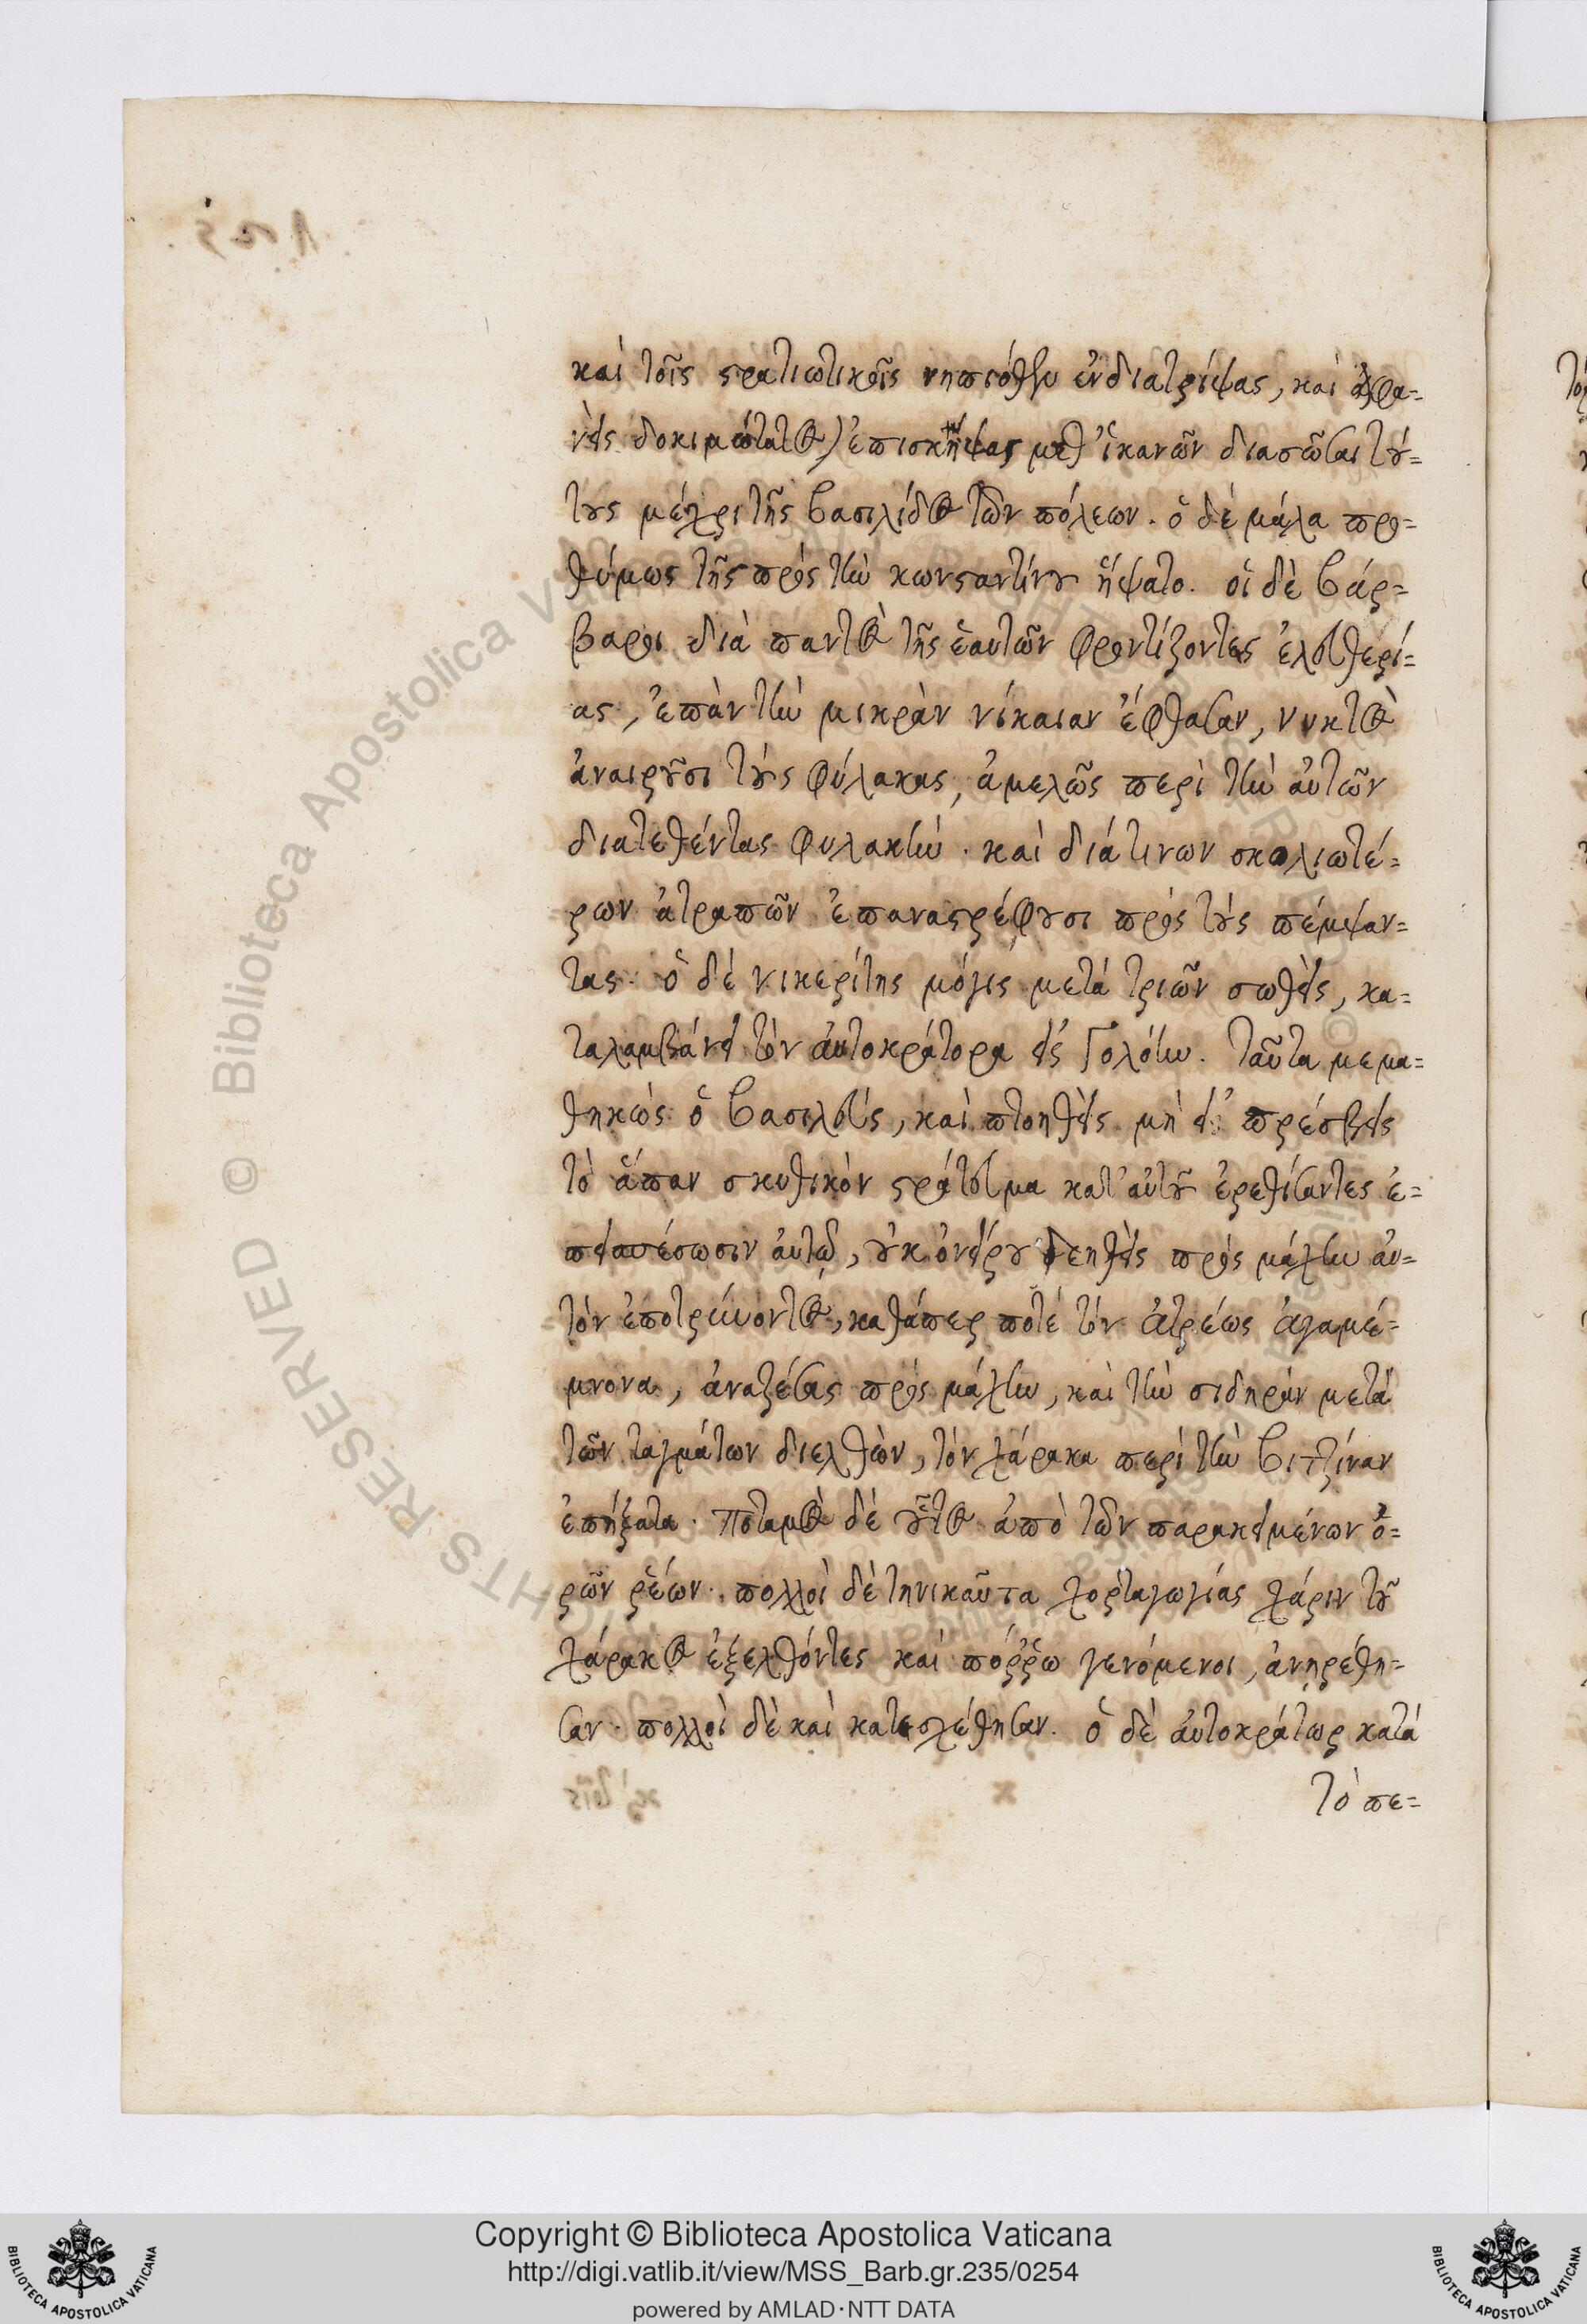 καὶ τοῖς στρατιωτικοῖς νηπιόθεν ἐνδιατρίψας, καὶ ἀφα-
νεὶς δοκιμώτατος) ἐπισκήψας μεθ' ἱκανῶν διασῶσαι τού-
τους μέχρι τῆς βασιλίδος τῶν πόλεων. ὁ δὲ μάλα προ-
θύμως τῆς πρὸς τὴν κωνσταντίνου ἥψατο. οἱ δὲ βάρ-
βαροι διὰ παντὸς τῆς ἑαυτῶν φροντίζοντες ἐλευθερί-
ας, ἐπὰν τὴν μικρὰν νίκαιαν ἔφθασαν, νυκτὸς
ἀναιροῦσι τοὺς φύλακας, ἀμελῶς περὶ τὴν αὐτῶν
διατεθέντας φυλακὴν. καὶ διά τινων σκολιωτέ-
ρων ἀτραπῶν ἐπαναστρέφουσι πρὸς τοὺς πέμψαν-
τας. ὁ δὲ νικερίτης μόγις μετὰ τριῶν σωθεὶς, κα-
ταλαμβάνει τὸν αὐτοκράτορα εἰς Γολόην. ταῦτα μεμα-
θηκὼς ὁ βασιλεὺς, καὶ πτοηθεὶς μὴ οἱ πρέσβεις
τὸ ἅπαν σκυθικὸν στράτευμα κατ' αὐτοῦ ἐρεθίσαντες ἐ-
πεισπέσωσιν αὐτῷ, οὐκ ὀνείρου δεηθεὶς πρὸς μάχην αὐ-
τὸν ἐποτρύνοντος, καθάπερ ποτὲ τὸν ἀτρέως ἀγαμέ-
μνονα, ἀναζέσας πρὸς μάχην, καὶ τὴν σιδηρὰν μετὰ
τῶν ταγμάτων διελθὼν, τὸν χάρακα περὶ τὴν βιτζίναν
ἐπήξατο. ποταμὸς δὲ οὗτος ἀπὸ τῶν παρακειμένων ὀ-
ρῶν ῥέων. πολλοὶ δὲ τηνικαῦτα χορταγωγίας χάριν τοῦ
χάρακος ἐξελθόντες καὶ πόῤῥω γενόμενοι, ἀνῃρέθη-
σαν. πολλοὶ δὲ καὶ κατεσχέθησαν. ὁ δὲ αὐτοκράτωρ κατὰ
τὸ πε-
Copyright © Biblioteca Apostolica Vaticana
http://digi.vatlib.it/view/MSS_Barb.gr.235/0254
powered by AMLAD·NTT DATA
BIBLIOTECA APOSTOLICA VATICANA
BIBLIOTECA APOSTOLICA VATICANA